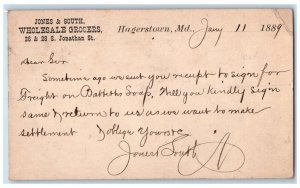 JONES & SOUTH,
WHOLESALE GROCERS,
26 & 28 S. Jonathan St.
Hagerstown, Md., Jany 11 1889
Dear Sir
Sometime ago we sent you receipt to sign for
Freight on Babbitts Soap, Will you kindly sign
same & return to us as we want to make
settlement & oblige Yours &c
Jones & South